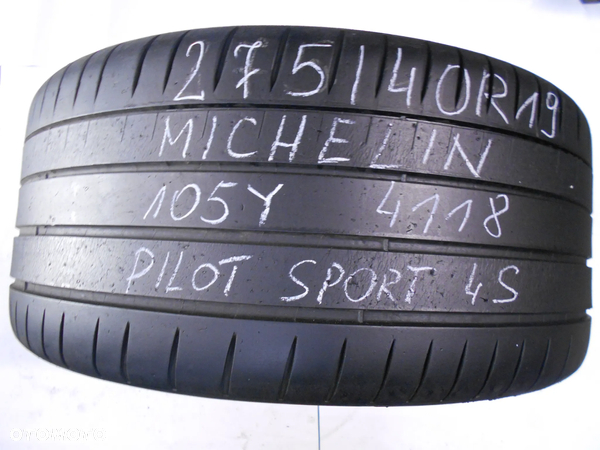 275/40R19
MICHELIN
105Y 4118
PILOT SPORT 4S
OTOMOTO